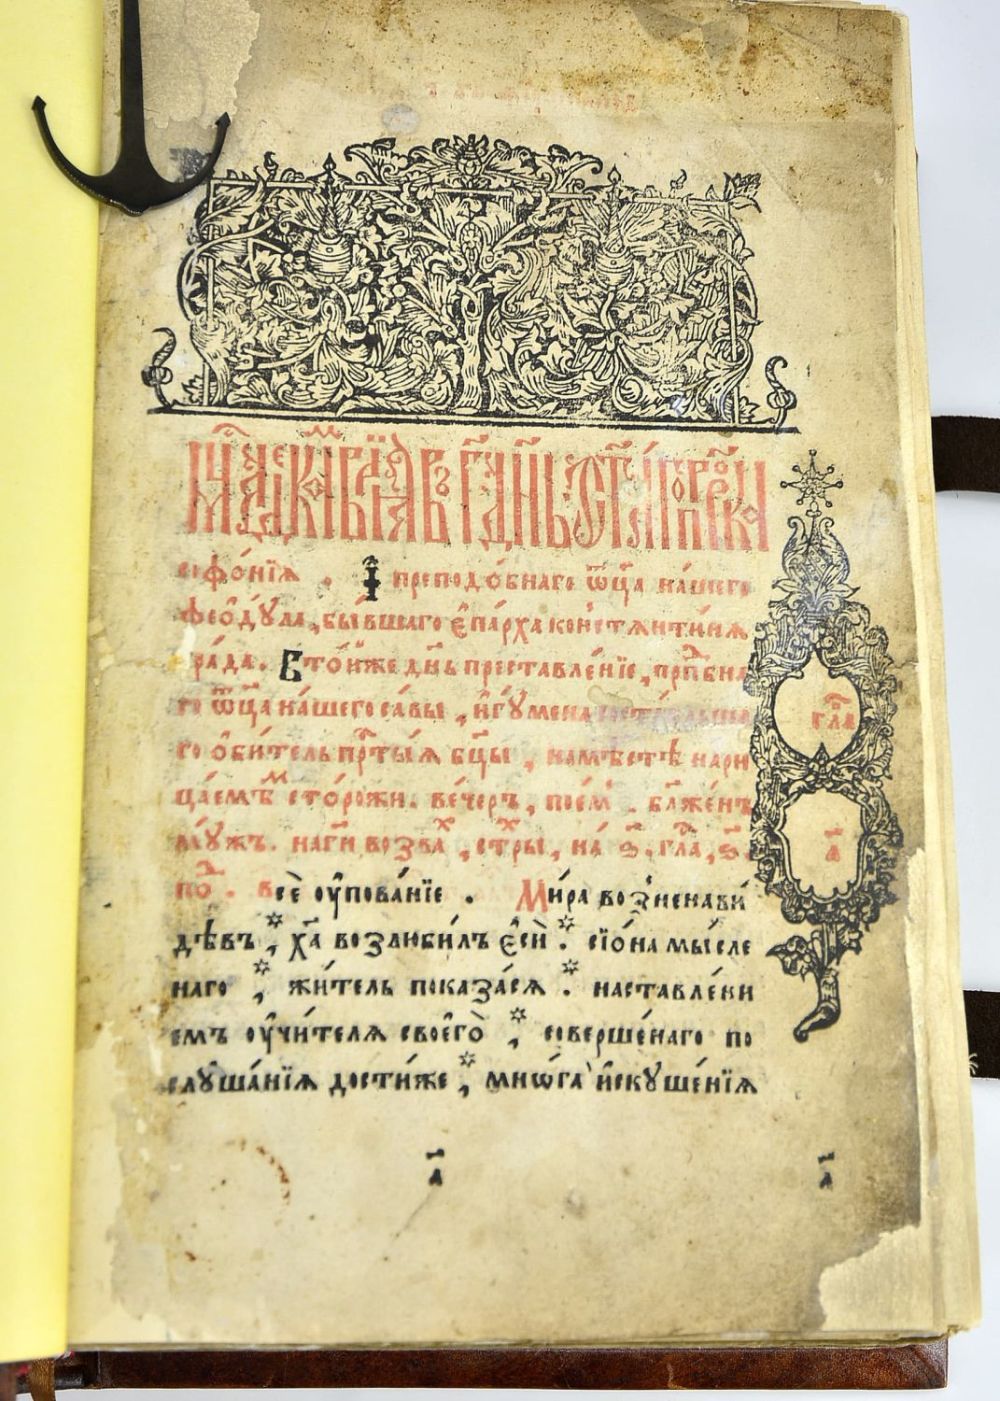 мⷭ҇ца декеⷨ҇вріа в г҃ дн҃ь ст҃аго прⷪ҇рка
софо́нїѧ . І преподо́бнаго ѿца̀ на́шего
феѻду́ла, бы́вшаго є҆па́рха константи́нѧ
гра́да. В то́йже дн҃ь преставле́нїе, прпⷣбна
го ѿца̀ на́шего са́вы , и҆гꙋ́мена
го ѻ҆би́тель прⷭ҇ты́ѧ бц҃ы , на мѣ́стѣ нари
ца́емѣⷨ сторо́жи. ве́черъ , пое́мⸯ . бл҃же́нъ
мꙋ́жъ. на гн҃и возваⷯ , стⷯры , на ѕ҃. гла́, ѕ҃.
поⷣ . всѐ оу҆пова́нїе . Ми́ра возненави́
дѣвъ , хрⷭ҇та̀ возлюби́лъ є҆сѝ . сїѻ́на мы́сле
наго , жи́тель показа́сѧ . наставле́ни
емъ оу҆чи́телѧ своегѻ̀ , соверше́наго по
слꙋша́нїѧ дости́же , мнѡ́га и҆скꙋше́нїѧ
гла
а҃
а҃
а҃